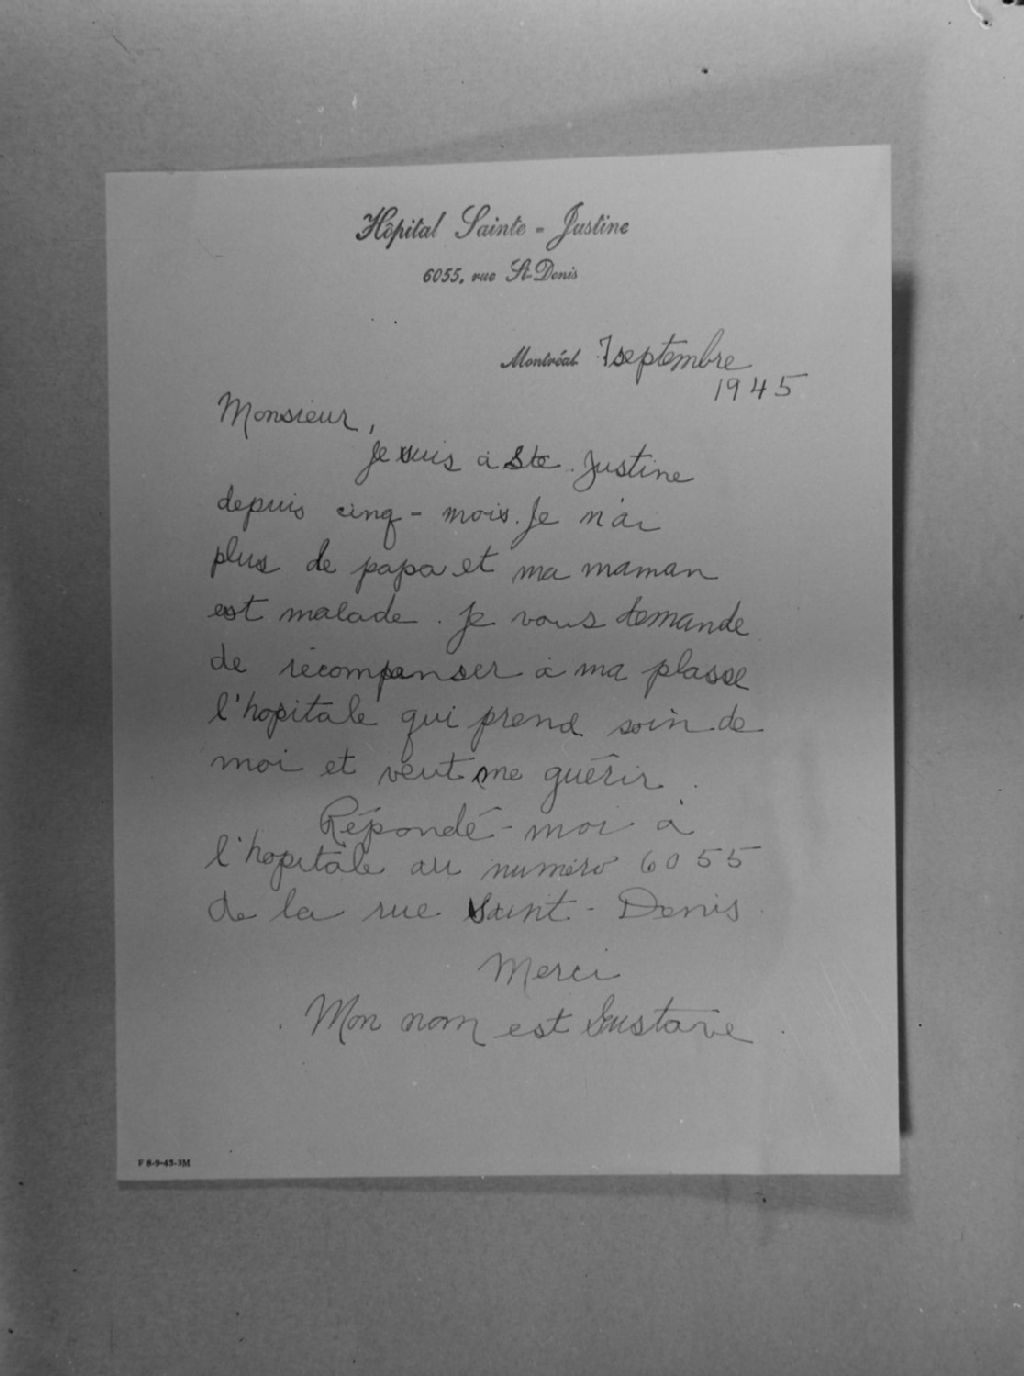 Hôpital Sainte-Justine
6055, rue St-Denis
Montréal 7 septembre
1945
Monsieur,
Je suis à Ste. Justine
depuis cinq-mois. Je n'ai
plus de papa et ma maman
est malade. Je vous demande
de récompenser à ma plasse
l'hopitale qui prend soin de
moi et veut me guérir.
Répondé-moi à
l'hopitale au numéro 6055
de la rue Saint-Denis.
Merci
Mon nom est Gustave.
F 8-9-43-3M